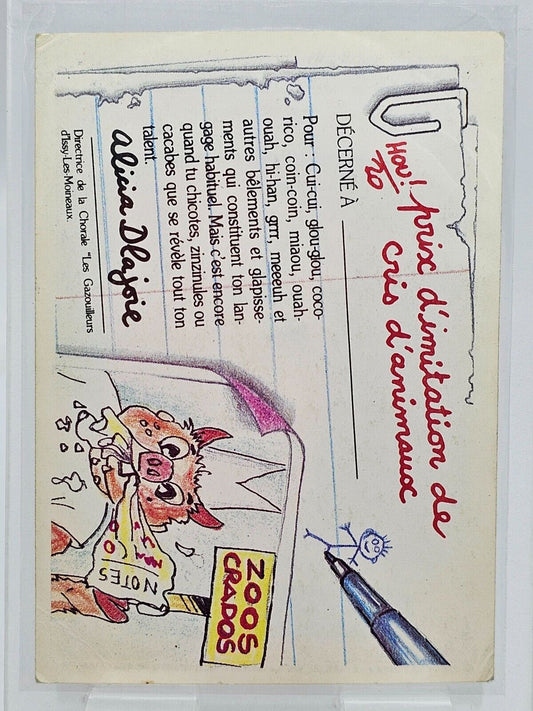 Hou! prix d'imitation de
20
cris d'animaux
DÉCERNÉ À
Pour : Cui-cui, glou-glou, coco-
rico, coin-coin, miaou, ouah-
ouah, hi-han, grrr, meeeuh et
autres bêlements et glapisse-
ments qui constituent ton lan-
gage habituel. Mais c'est encore
quand tu chicotes, zinzinules ou
cacabes que se révèle tout ton
talent.
Alicia Dlajoie
Directrice de la Chorale "Les Gazouilleurs
d'Issy-Les-Moineaux.
ZOOS
CRADOS
NOTES